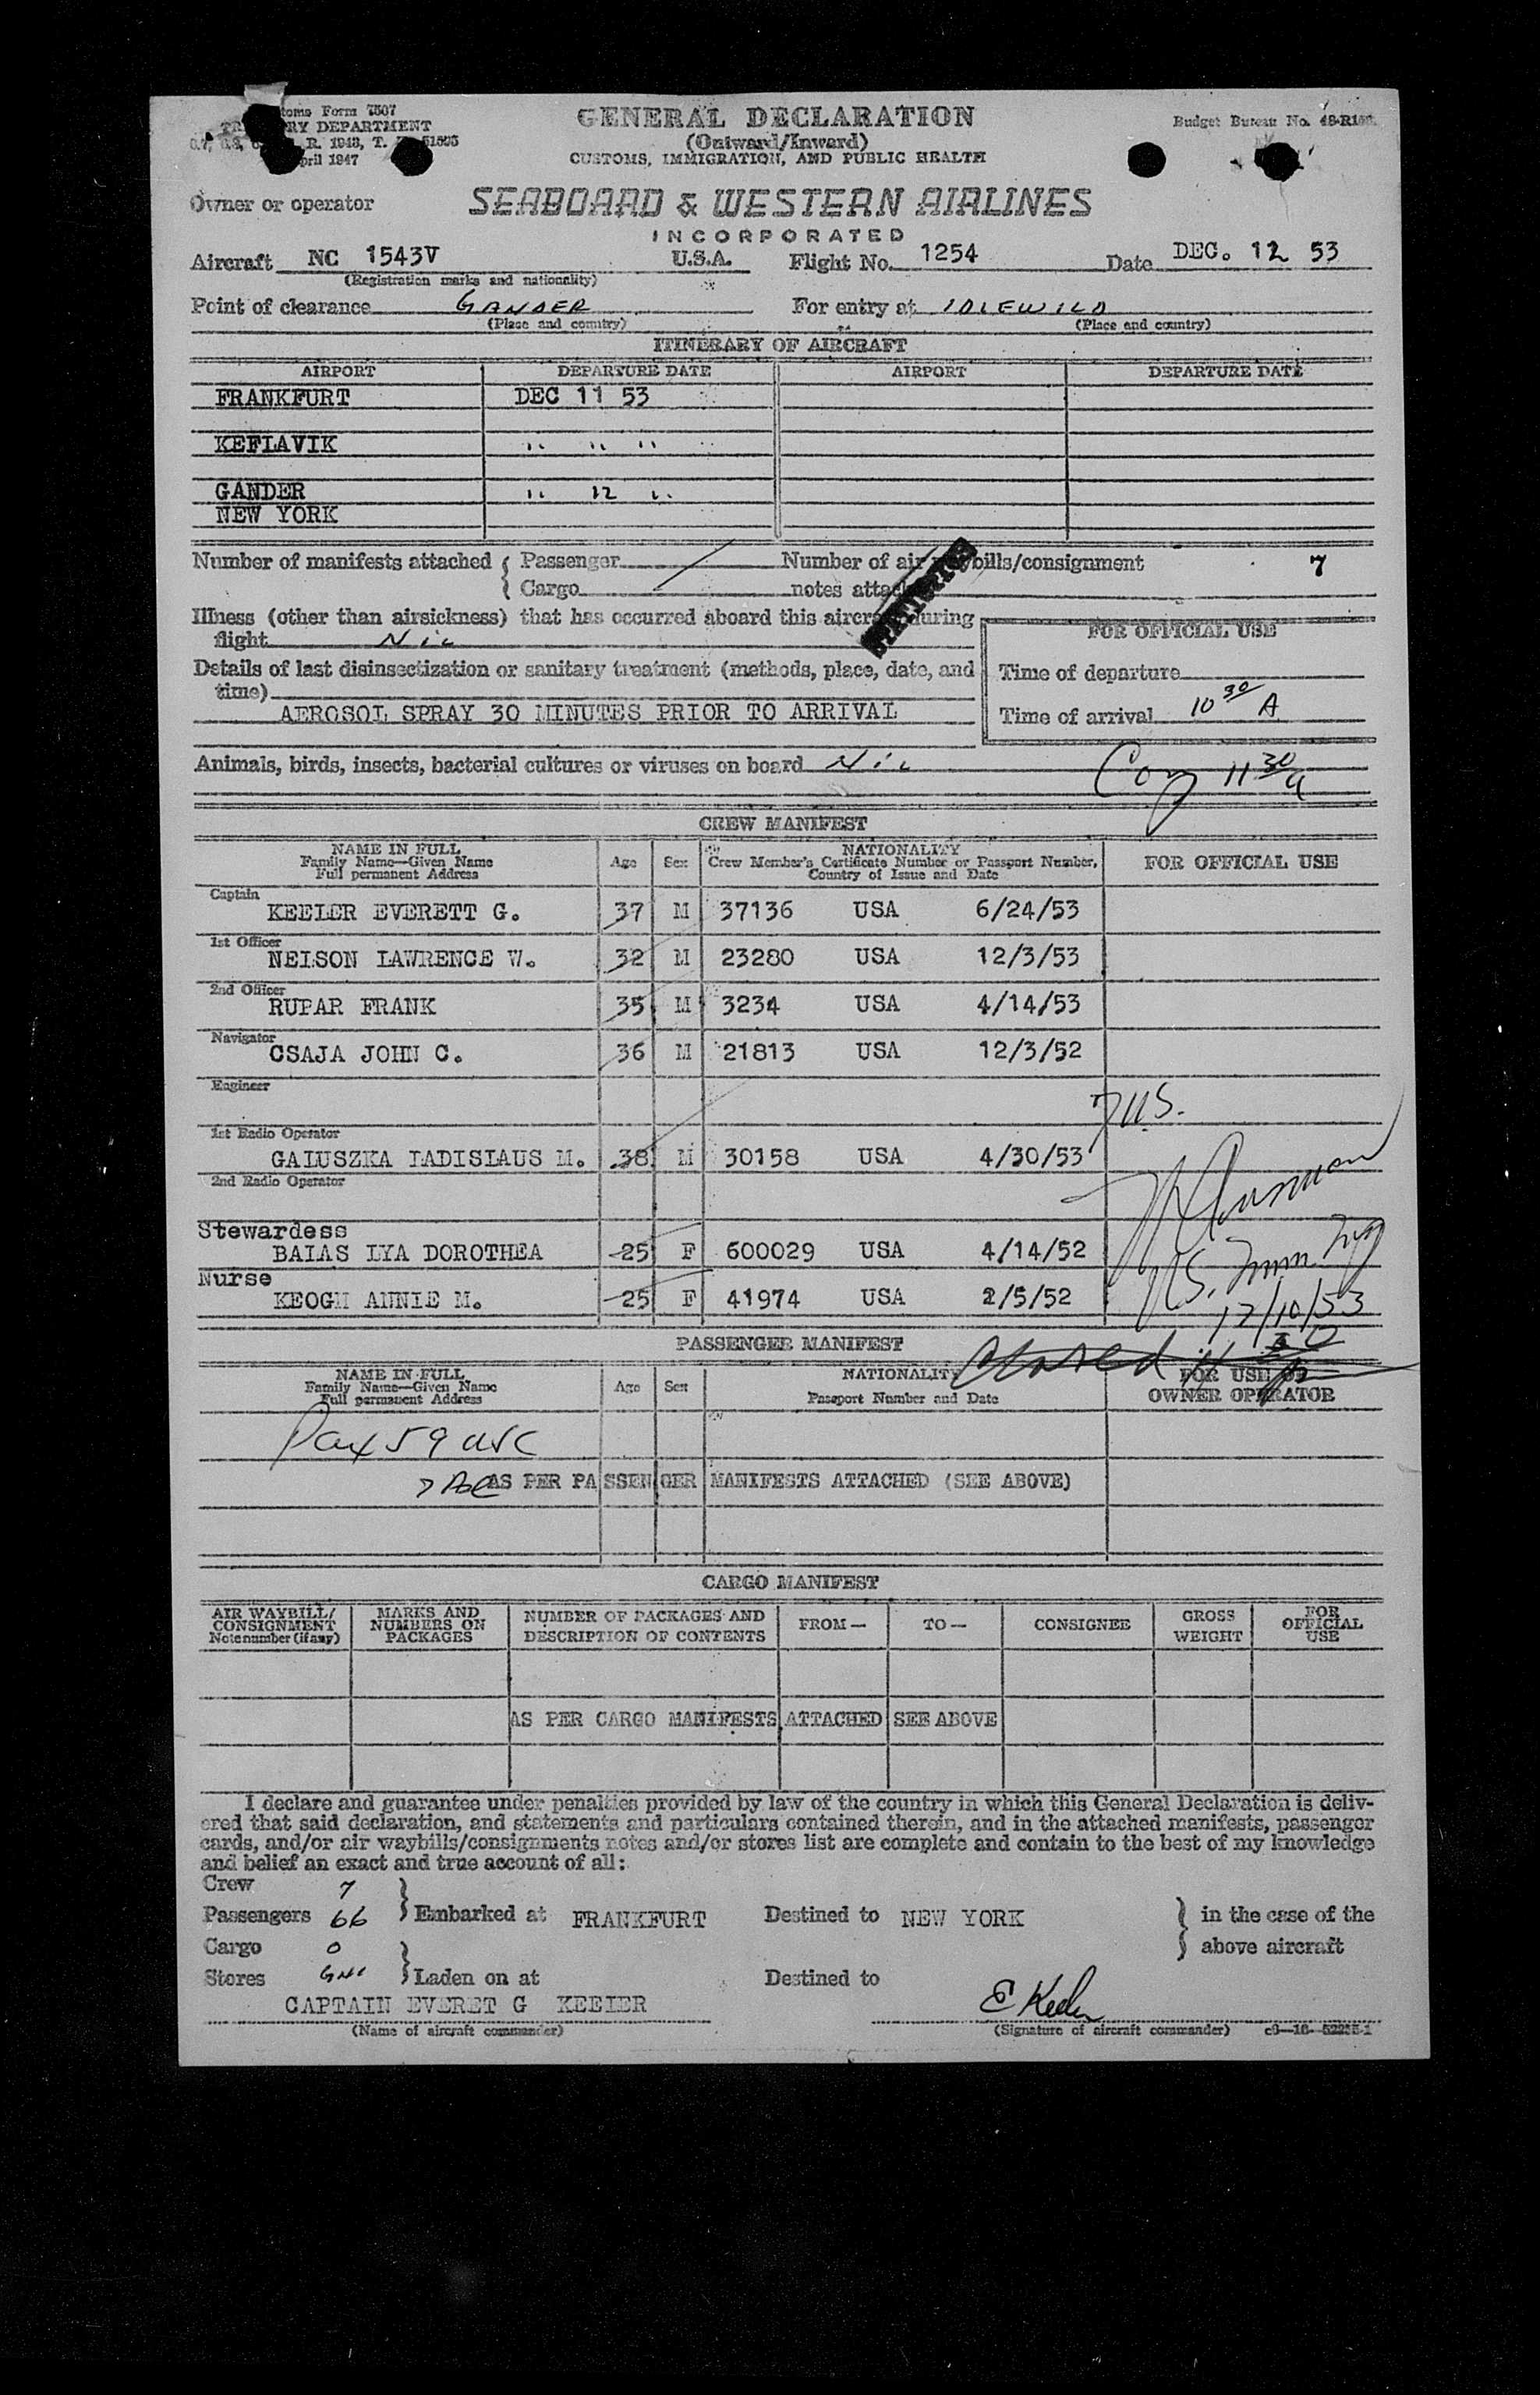 Customs Form 7507
TREASURY DEPARTMENT
R. 1943, T.
April 1947
GENERAL DECLARATION
(Outward/Inward)
CUSTOMS, IMMIGRATION, AND PUBLIC HEALTH
Budget Bureau No.
Owner or operator
SEABOARD & WESTERN AIRLINES
INCORPORATED
Aircraft NC 1543V U.S.A. Flight No. 1254 Date DEC. 12 53
(Registration marks and nationality)
Point of clearance GANDER For entry at IDLEWILD
(Place and country) (Place and country)
ITINERARY OF AIRCRAFT
AIRPORT DEPARTURE DATE AIRPORT DEPARTURE DATE
FRANKFURT DEC 11 53
KEFLAVIK " " "
GANDER " 12 "
NEW YORK
Number of manifests attached { Passenger Number of air waybills/consignment 7
Cargo notes attached
Illness (other than airsickness) that has occurred aboard this aircraft during
flight Nil
FOR OFFICIAL USE
Details of last disinsectization or sanitary treatment (methods, place, date, and
time)
Time of departure
AEROSOL SPRAY 30 MINUTES PRIOR TO ARRIVAL
Time of arrival 10 30 A
Animals, birds, insects, bacterial cultures or viruses on board Nil
11 30 a
CREW MANIFEST
NAME IN FULL
Family Name—Given Name
Full permanent Address
Age Sex
NATIONALITY
Crew Member's Certificate Number or Passport Number,
Country of Issue and Date
FOR OFFICIAL USE
Captain
KEELER EVERETT G. 37 M 37136 USA 6/24/53
1st Officer
NELSON LAWRENCE W. 32 M 23280 USA 12/3/53
2nd Officer
RUPAR FRANK 35 M 3234 USA 4/14/53
Navigator
CSAJA JOHN C. 36 M 21813 USA 12/3/52
Engineer
7 US.
1st Radio Operator
GALUSZKA LADISLAUS M. 38 M 30158 USA 4/30/53
2nd Radio Operator
Stewardess
BALAS LYA DOROTHEA 25 F 600029 USA 4/14/52
Nurse
KEOGH ANNIE M. 25 F 41974 USA 2/5/52
US. Imm. Insp
12/10/53
PASSENGER MANIFEST
Closed
NAME IN FULL
Family Name—Given Name
Full permanent Address
Age Sex
NATIONALITY
Passport Number and Date
FOR USE OF
OWNER OPERATOR
Pax 59 USC
7 AS PER PASSENGER MANIFESTS ATTACHED (SEE ABOVE)
CARGO MANIFEST
AIR WAYBILL/
CONSIGNMENT
Note number (if any)
MARKS AND
NUMBERS ON
PACKAGES
NUMBER OF PACKAGES AND
DESCRIPTION OF CONTENTS
FROM— TO— CONSIGNEE
GROSS
WEIGHT
FOR
OFFICIAL
USE
AS PER CARGO MANIFESTS ATTACHED SEE ABOVE
I declare and guarantee under penalties provided by law of the country in which this General Declaration is deliv-
ered that said declaration, and statements and particulars contained therein, and in the attached manifests, passenger
cards, and/or air waybills/consignments notes and/or stores list are complete and contain to the best of my knowledge
and belief an exact and true account of all:
Crew 7
Passengers 66 } Embarked at FRANKFURT Destined to NEW YORK } in the case of the
Cargo 0 above aircraft
Stores } Laden on at Destined to
CAPTAIN EVERET G KEELER E Keeler
(Name of aircraft commander) (Signature of aircraft commander)